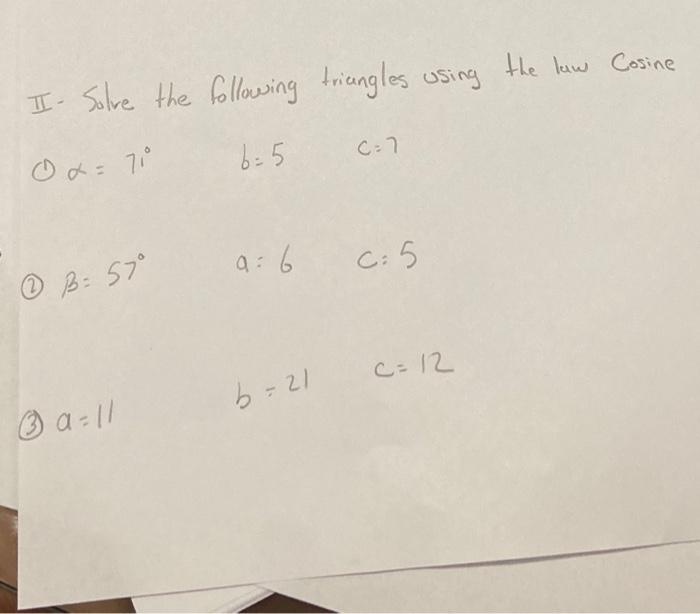 II- Solve the following triangles using the law Cosine
① α= 71° b=5 c=7
② β= 57° a=6 c=5
③ a=11 b=21 c=12